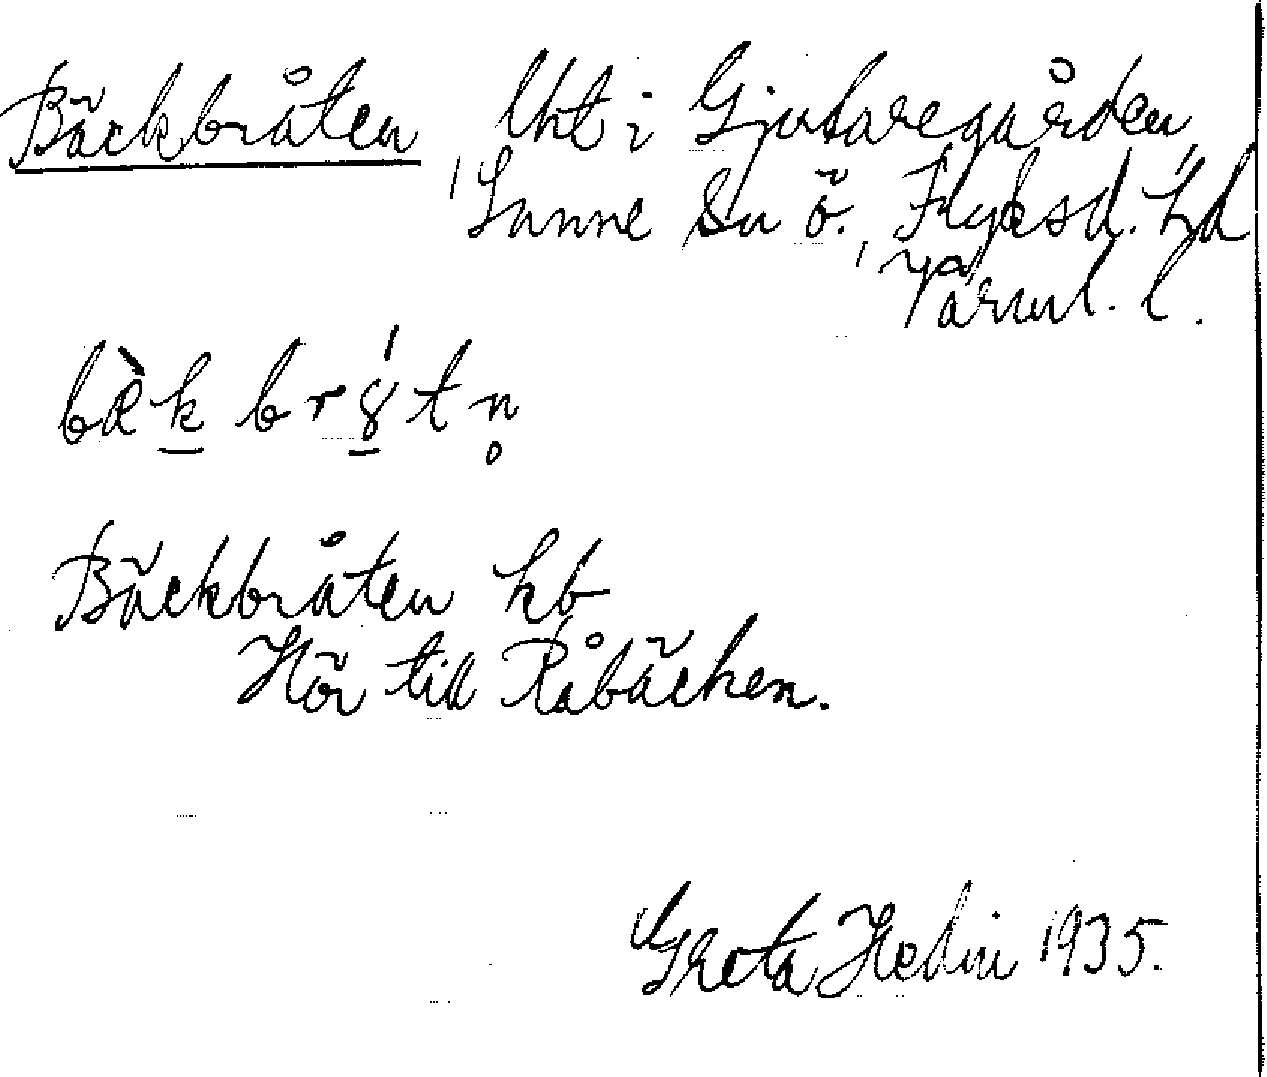 Bäckbråten Lht i Gjutaregården,
Sunne Sn ö. Fryksd. hd
Värml. l.
bæ̀k br8́tn̥
Bäckbråten hb
Hör till Råbäcken.
Greta Hedin 1935.